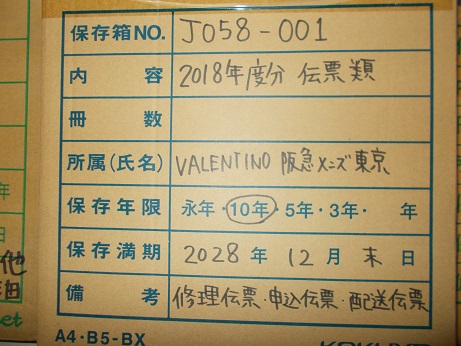 保存箱NO. J058-001
内容 2018年度分 伝票類
冊数
所属(氏名) VALENTINO 阪急メンズ東京
保存年限 永年・10年・5年・3年・ 年
保存満期 2028年 12月 末日
備考 修理伝票・申込伝票・配送伝票
A4・B5-BX
年
日
他